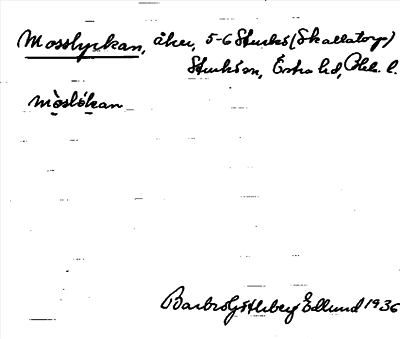 Mosslyckan, åker, 5-6 Sturkö (Skallatorp)
Sturkö sn, Östra hd, Blek. l.
mòslỳkan
Barbro Götlberg Edlund 1936